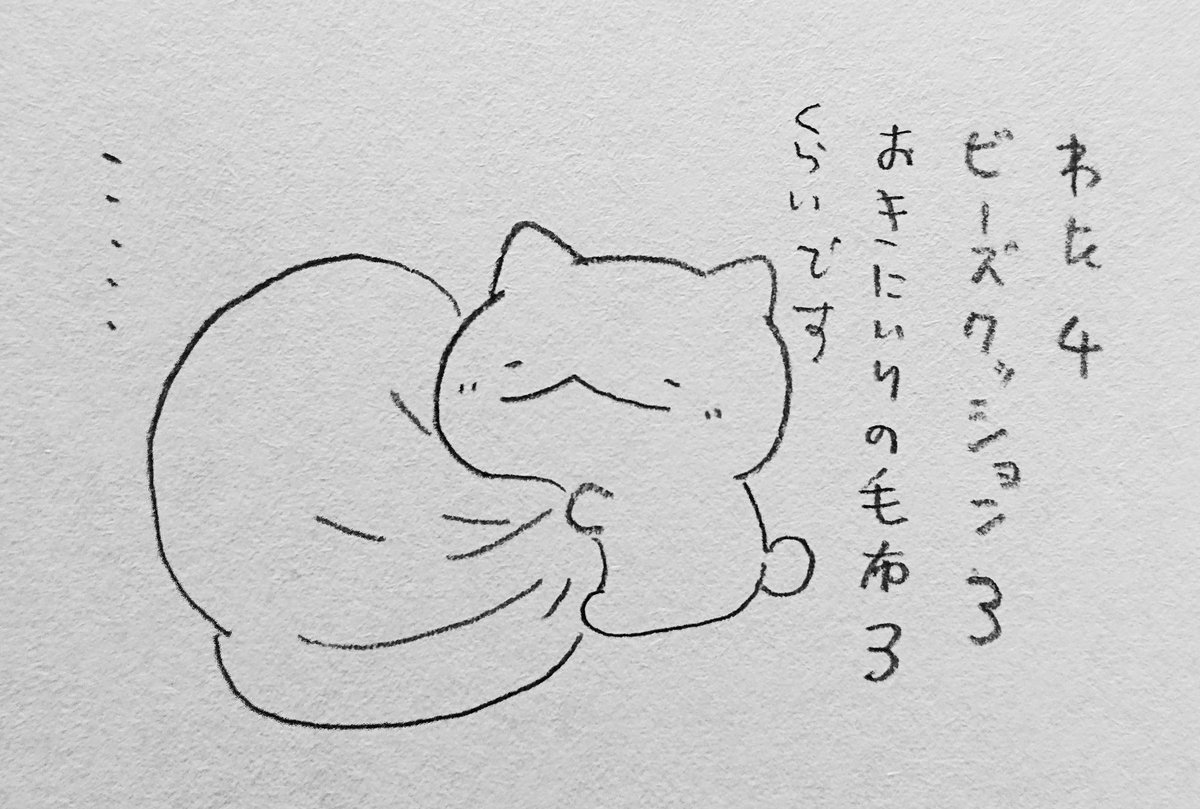 わた4
ビーズクッション3
おきにいりの毛布3
くらいです
・・・・・